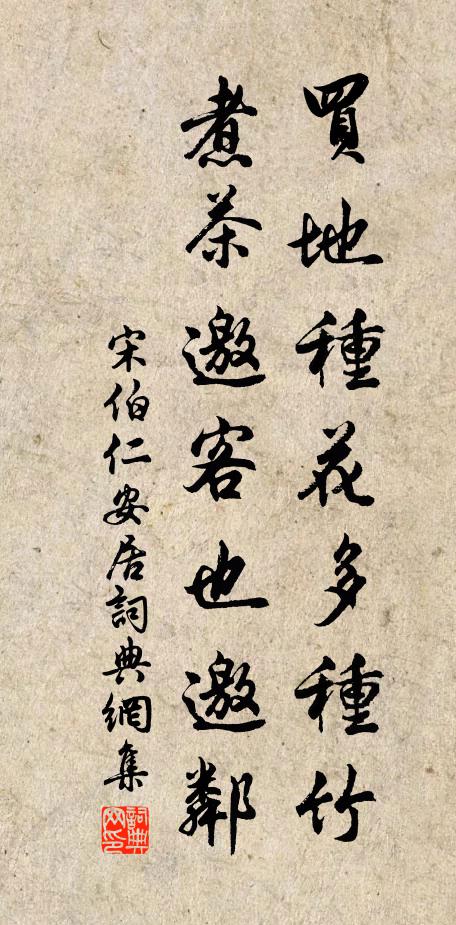 買地種花多種竹
煮茶邀客也邀鄰
宋伯仁安居詞典網集
詞典网印